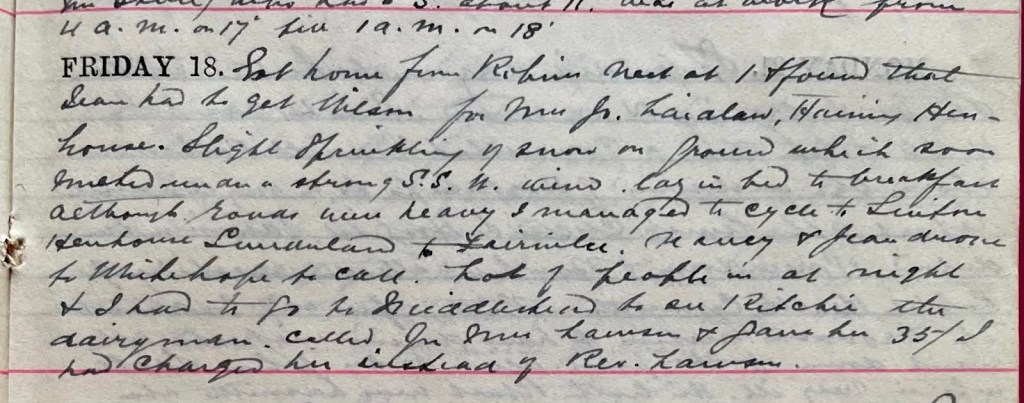 4 a.m. on 17th till 1 a.m. on 18th
FRIDAY 18. Got home from Robins Nest at 1 & found that
Jean had to get Wilson for Mrs Jo. Laidlaw, Haining Hen-
house. Slight Sprinkling of snow on ground which soon
melted under a strong S.S.W. wind. Lay in bed to breakfast
although roads were heavy I managed to cycle to Linton
Henhouse Sunderland to Fairnilee. Nancy & Jean drove
to Whitehope to call. Lot of people in at night
& I had to go to Middlestead to see Ritchie the
dairyman. Called for Mrs Lawson & gave her 35/ I
had charged her instead of Rev. Lawson.